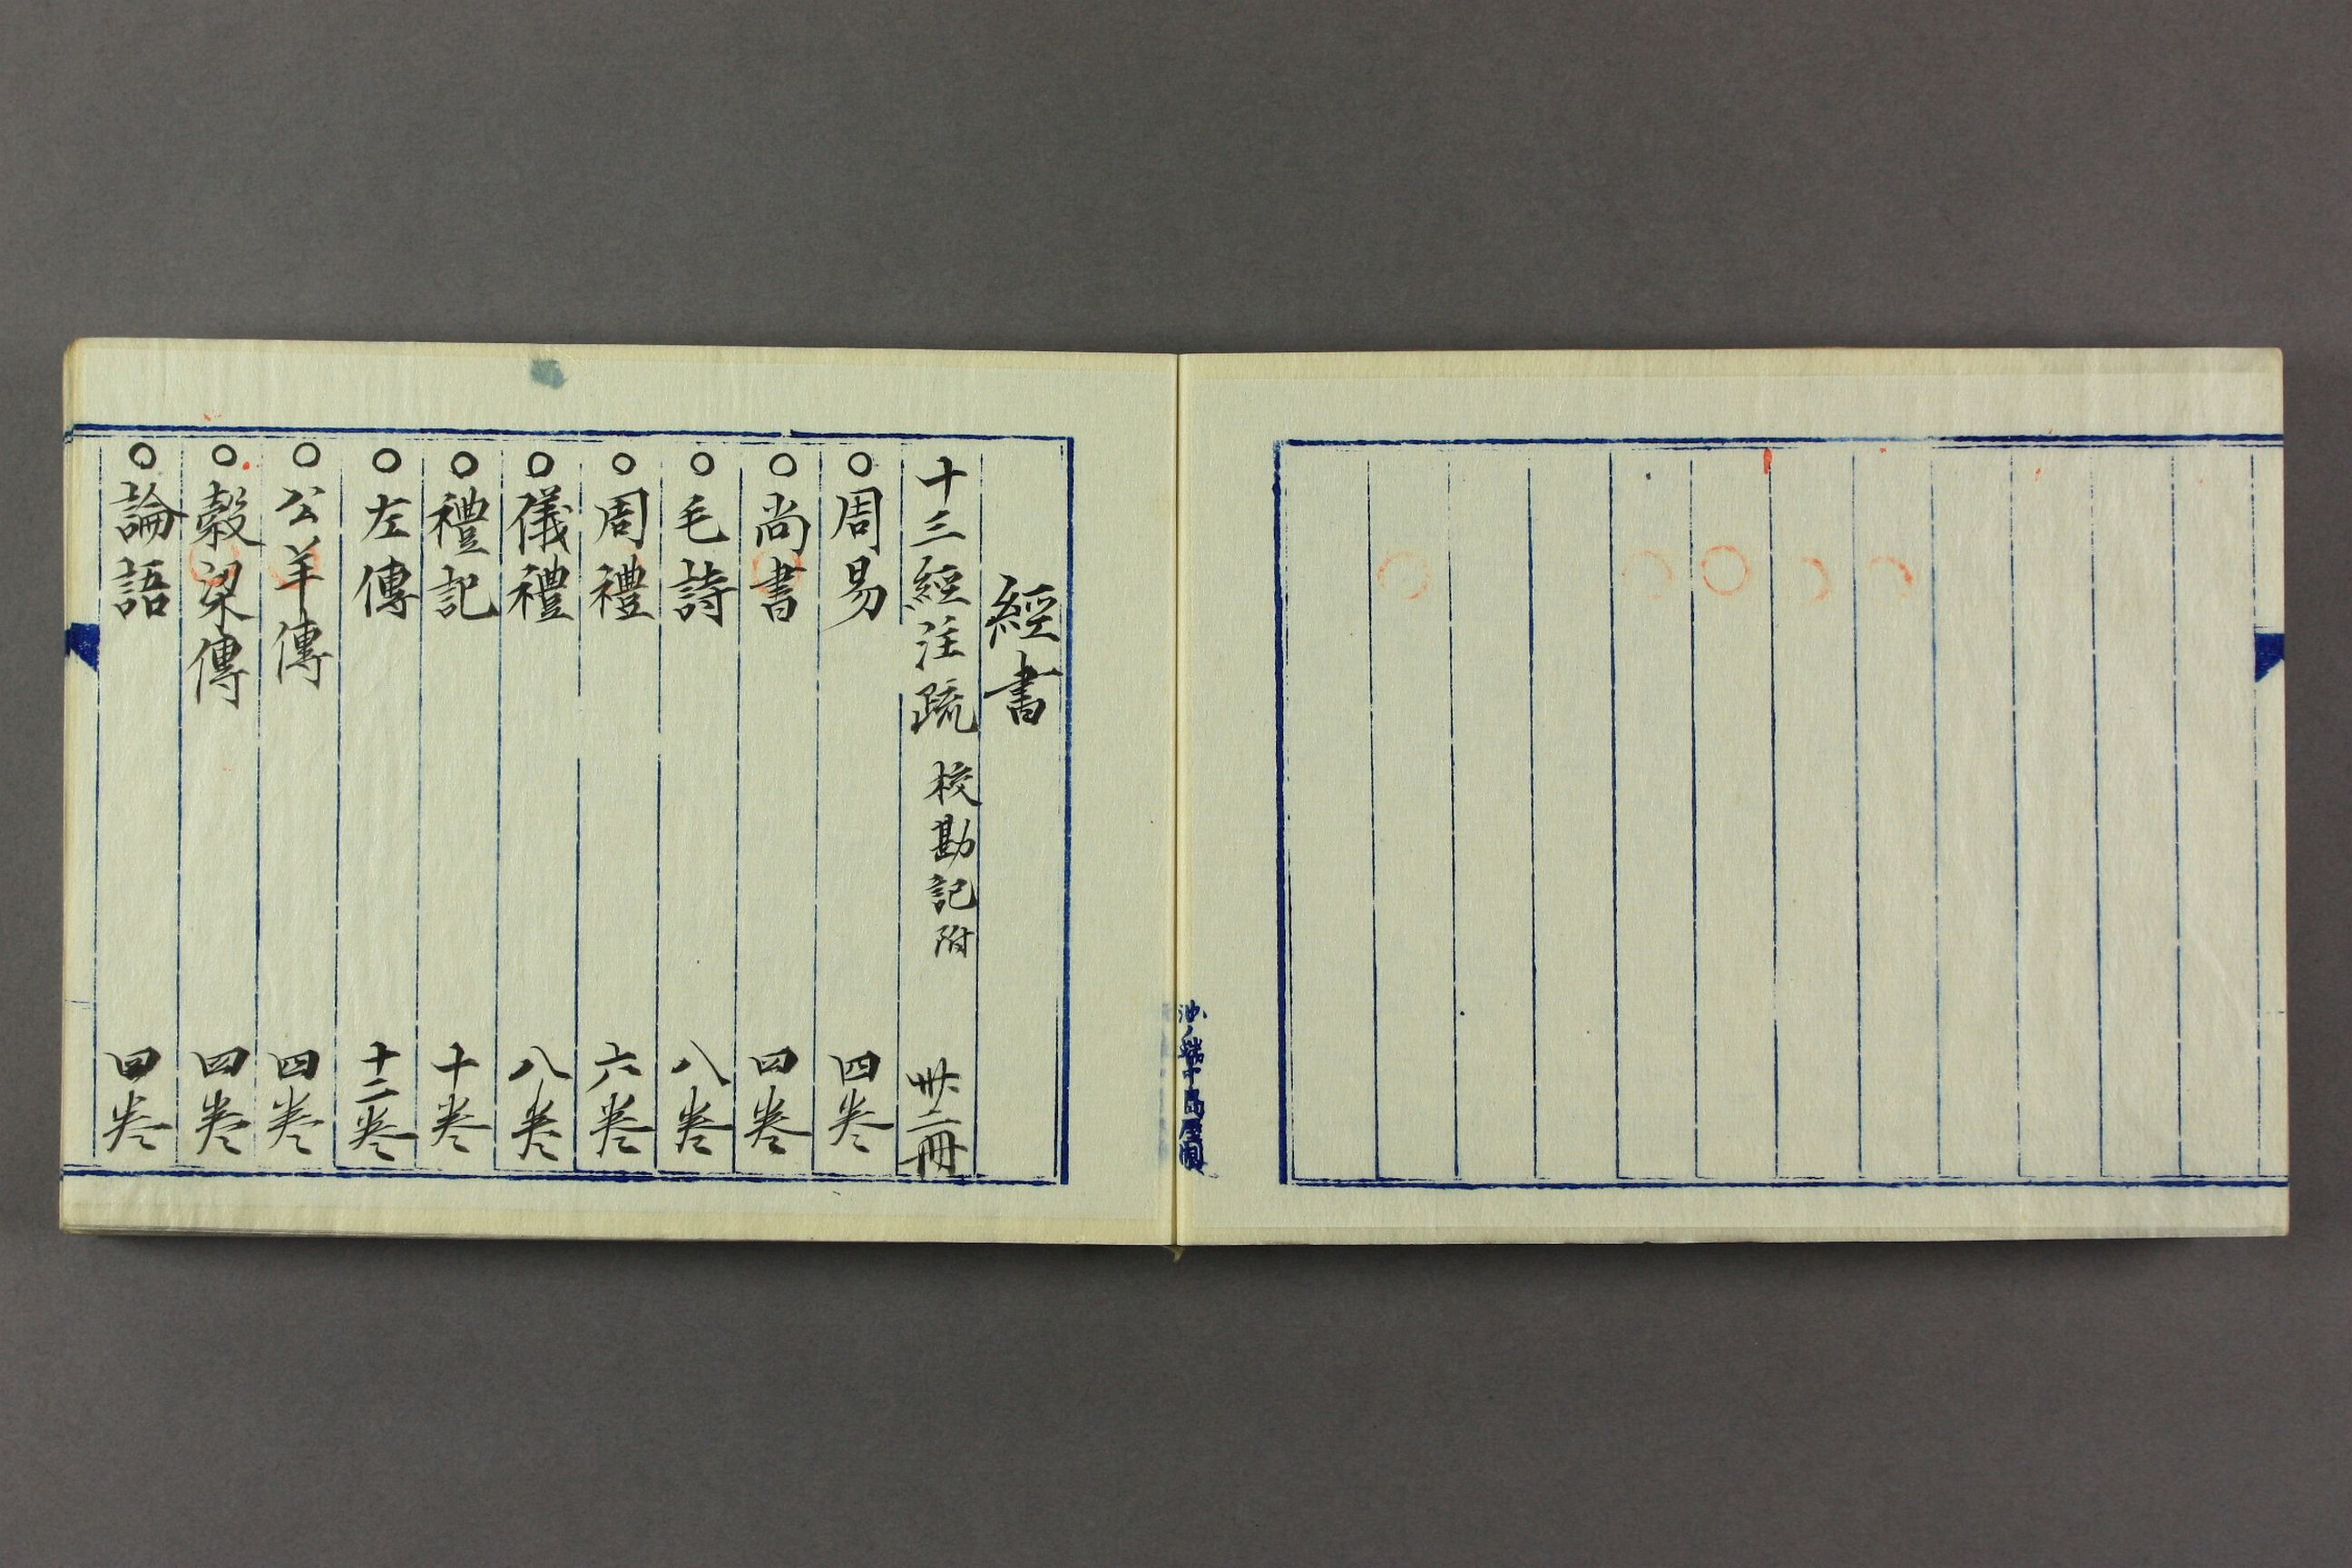 經書
十三經注疏 校勘記附 卅二冊
○周易 四卷
○尚書 四卷
○毛詩 八卷
○周禮 六卷
○儀禮 八卷
○禮記 十卷
○左傳 十二卷
○公羊傳 四卷
○穀梁傳 四卷
○論語 四卷